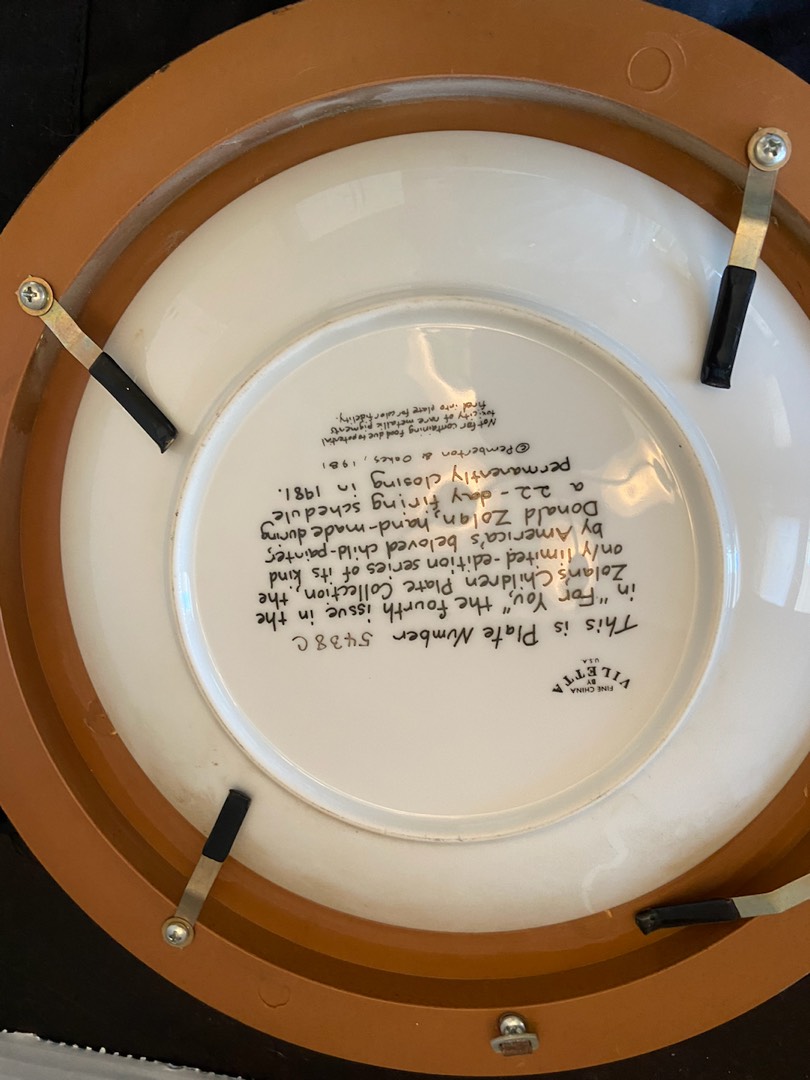 FINE CHINA
BY
VILETTA
U.S.A
This is Plate Number 5438C
in "For You," the fourth issue in the
Zolan's Children Plate Collection, the
only limited-edition series of its kind
by America's beloved child-painter,
Donald Zolan, hand-made during
a 22-day firing schedule
permanently closing in 1981.
© Pemberton & Oakes, 1981
Not for containing food due to potential
toxicity of rare metallic pigments
fired into plate for color fidelity.